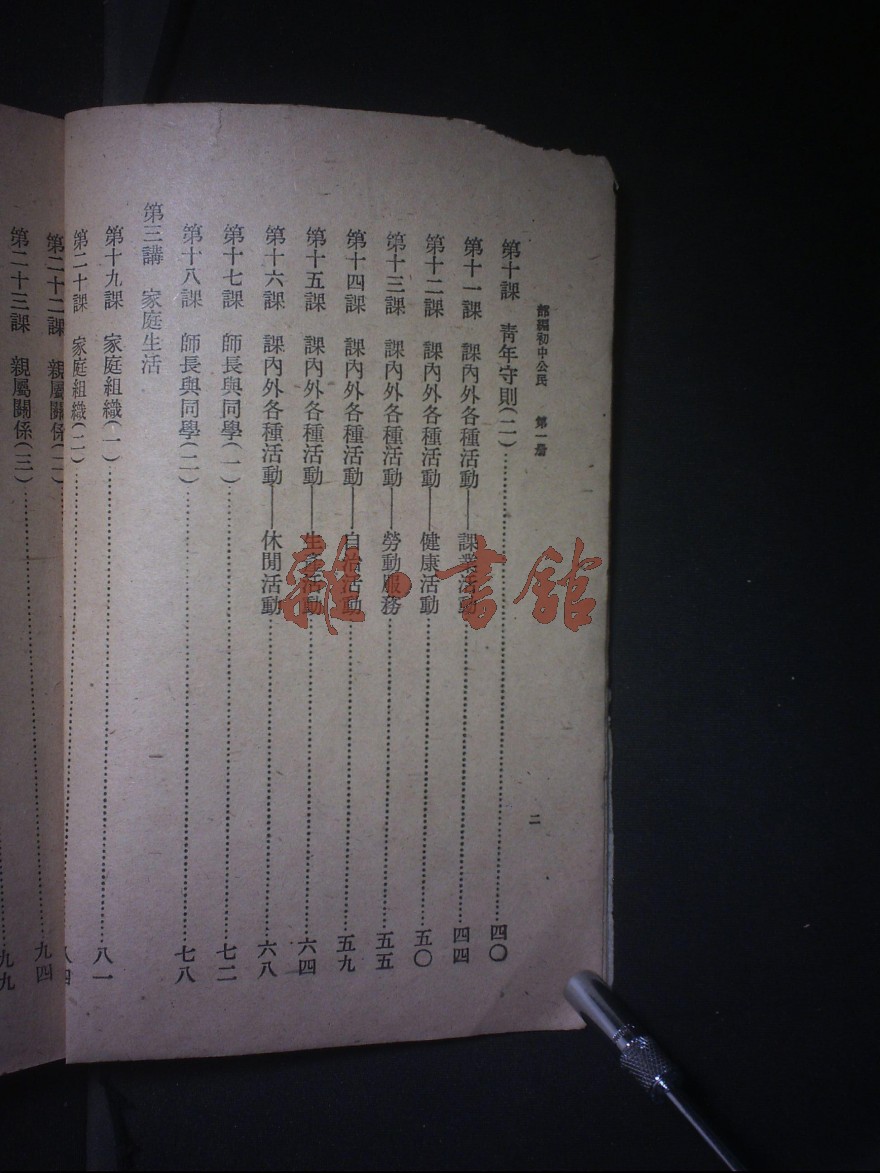 部編初中公民 第一册
二
第十課 青年守則(二)……四〇
第十一課 課內外各種活動——課業活動……四四
第十二課 課內外各種活動——健康活動……五〇
第十三課 課內外各種活動——勞動服務……五五
第十四課 課內外各種活動——自治活動……五九
第十五課 課內外各種活動——生產活動……六四
第十六課 課內外各種活動——休閒活動……六八
第十七課 師長與同學(一)……七二
第十八課 師長與同學(二)……七八
第三講 家庭生活
第十九課 家庭組織(一)……八一
第二十課 家庭組織(二)……八四
第二十二課 親屬關係(二)……九四
第二十三課 親屬關係(三)……九九
雜·書館